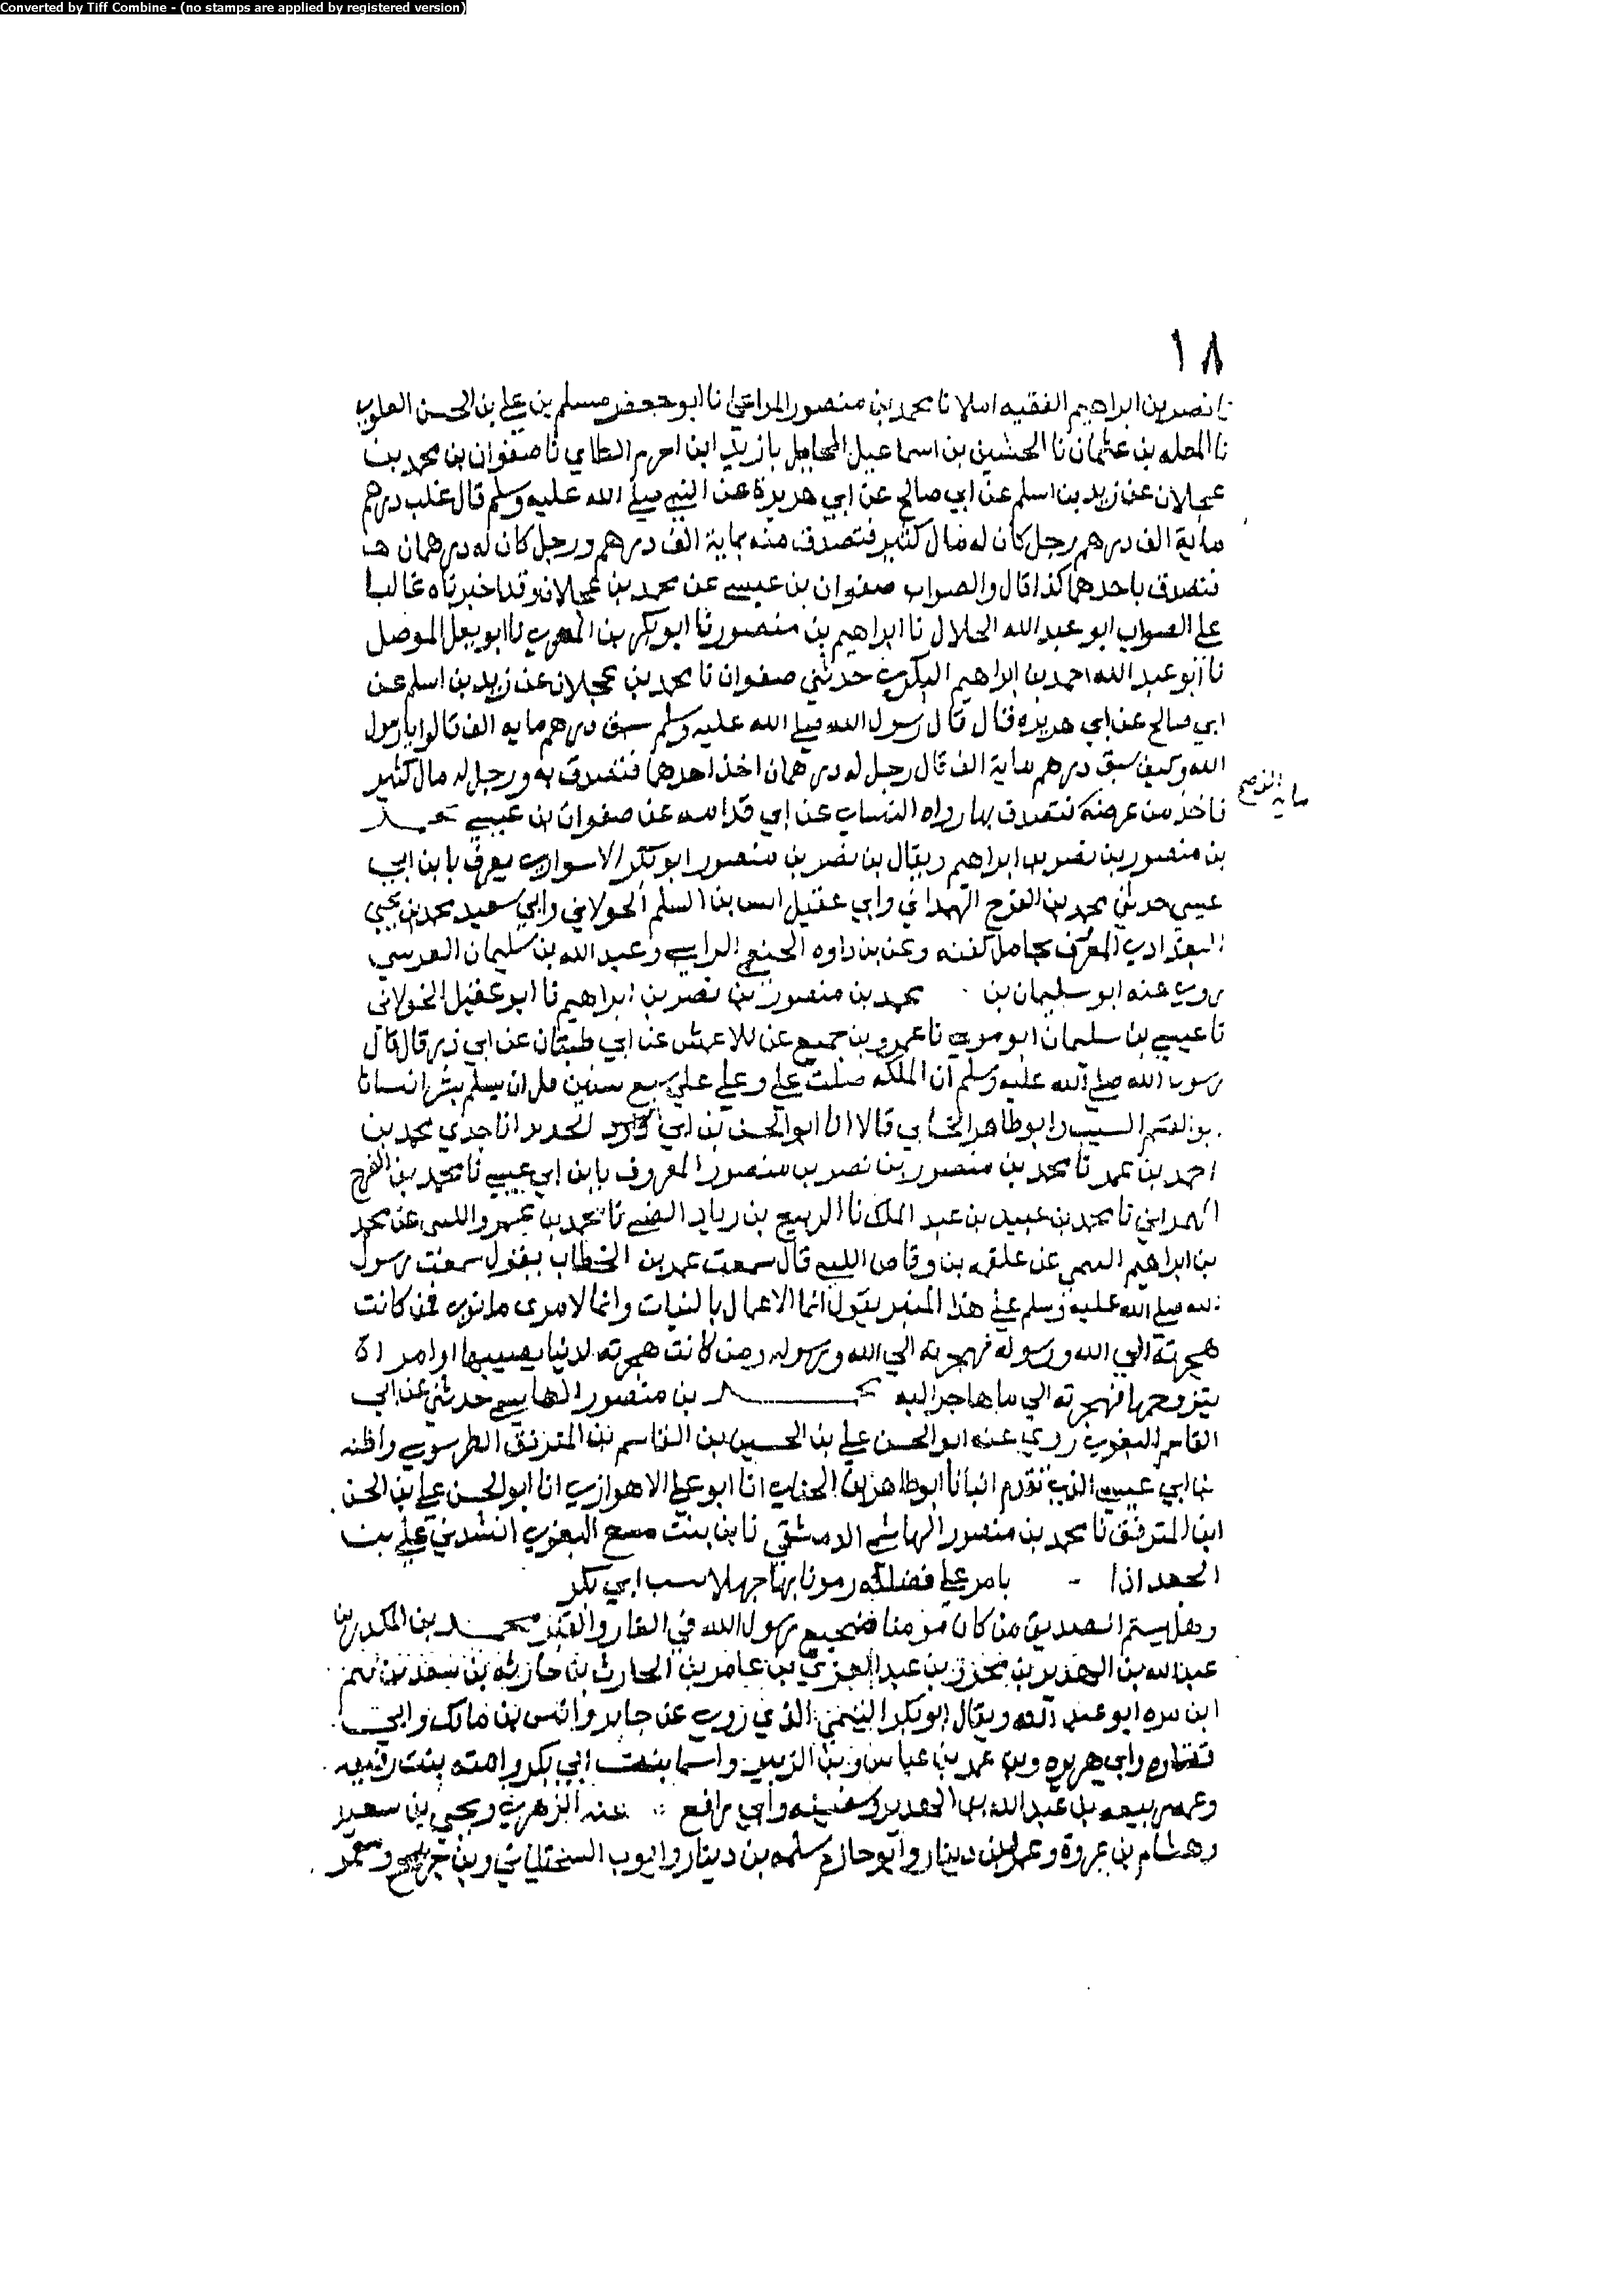 Converted by Tiff Combine - (no stamps are applied by registered version)
١٨
نا نصر بن ابراهيم الفقيه املا نا محمد بن منصور المراغي نا ابو جعفر مسلم بن علي بن الحسن العلوي
نا بن عثمان نا الحسين بن اسماعيل المحاملي نا زيد ابن اخرم الطاي نا صفوان بن محمد بن
عجلان عن زيد بن اسلم عن ابي صالح عن ابي هريرة عن النبي صلى الله عليه وسلم قال غلب درهم
ماية الف درهم رجل كان له مال كثير فتصدق منه بماية الف درهم ورجل كان له درهمان
فتصدق باحدهما كذا قال والصواب صفوان بن عيسى عن محمد بن عجلان وقد اخبرناه عاليا
على الصواب ابو عبد الله الخلال نا ابراهيم بن منصور نا ابو بكر بن المقري نا ابو يعلى الموصل
نا ابو عبد الله احمد بن ابراهيم حدثني صفوان نا محمد بن عجلان عن زيد بن اسلم عن
ابي صالح عن ابي هريره قال قال رسول الله صلى الله عليه وسلم سبق درهم مايه الف قالوا يا رسول
الله وكيف سبق درهم ماية الف قال رجل له درهمان اخذ احدهما فتصدق به ورجل له مال كثير
فاخذ من عرضه فتصدق بها رواه النساي عن ابي قدامه عن صفوان بن عيسى محمد
ماية الف صح
بن منصور بن نصر بن ابراهيم ويقال بن نصر بن منصور ابو بكر الاسواري يعرف بابن ابي
عيسى حدث محمد بن الفرج الهمداني وابي عقيل انس بن السلم الخولاني وابي سعيد محمد بن يحيى
البغدادي المعروف بحامل كفنه بن داوه وعبد الله بن سليمان
روى عنه ابو سليمان بن محمد بن منصور بن نصر بن ابراهيم نا ابو عقيل الخولاني
نا عيسى بن سليمان ابو موسى نا عمرو بن جميع عن الاعمش عن ابي ظبيان عن ابي ذر قال قال
رسول الله صلى الله عليه وسلم ان الملكه صلت علي وعلى علي سبع سنين قبل ان يسلم بشر انبانا
ابو القسم النسيب وابو طاهر الحنايي قالا انا ابو الحسن بن ابي الحديد انا جدي محمد بن
احمد بن نا محمد بن منصور بن نصر بن منصور المعروف بابن ابي عيسى نا محمد بن الفرج
الهمداني نا محمد بن عبيد بن عبد الملك نا الربيع بن زياد الضبي نا محمد بن عمرو الليثي عن محمد
بن ابراهيم التيمي عن علقمه بن وقاص الليثي قال سمعت عمر بن الخطاب يقول سمعت رسول
الله صلى الله عليه وسلم على هذا المنبر يقول انما الاعمال بالنيات وانما لامرى ما نوى فمن كانت
هجرته الى الله ورسوله فهجرته الى الله ورسوله ومن كانت هجرته لدنيا يصيبها او امراة
يتزوجها فهجرته الى ما هاجر اليه محمد بن منصور الهاشمي حدث عن ابي
القاسم البغوي روى عنه ابو الحسن علي بن الحسين بن القاسم بن المترفق الطرسوسي واظنه
بن ابي عيسى الذي تقدم انبانا ابو طاهر بن الحنايي انا ابو علي الاهوازي انا ابو الحسن علي بن الحسن
ابن المترفق نا محمد بن منصور الهاشمي الدمشقي نا بن بنت البغوي انشدني علي بن
الجعد اذا علي فضلكه رمونا بها جهلا بسب ابي بكر
وهل يشتم الصديق من كان مومنا ضجيع رسول الله في الغار والقبر محمد بن المنكدر بن
عبد الله بن الهدير بن محرز بن عبد العزى بن عامر بن الحارث بن حارثه بن سعد بن تيم
ابن مره ابو عبد الله ويقال ابو بكر التيمي الذي روى عن جابر وانس بن مالك وابي
قتاده وابي هريره وبن عمر بن عباس وبن الزبير واسما بنت ابي بكر وامته بنت رقيقه
وعمه ربيعه بن عبد الله بن الهدير وسفينه وابي رافع عنه الزهري ويحيى بن سعيد
وهشام بن عروة وعمرو بن دينار وابو حازم سلمه بن دينار وايوب السختياني وبن جريج ومعمر